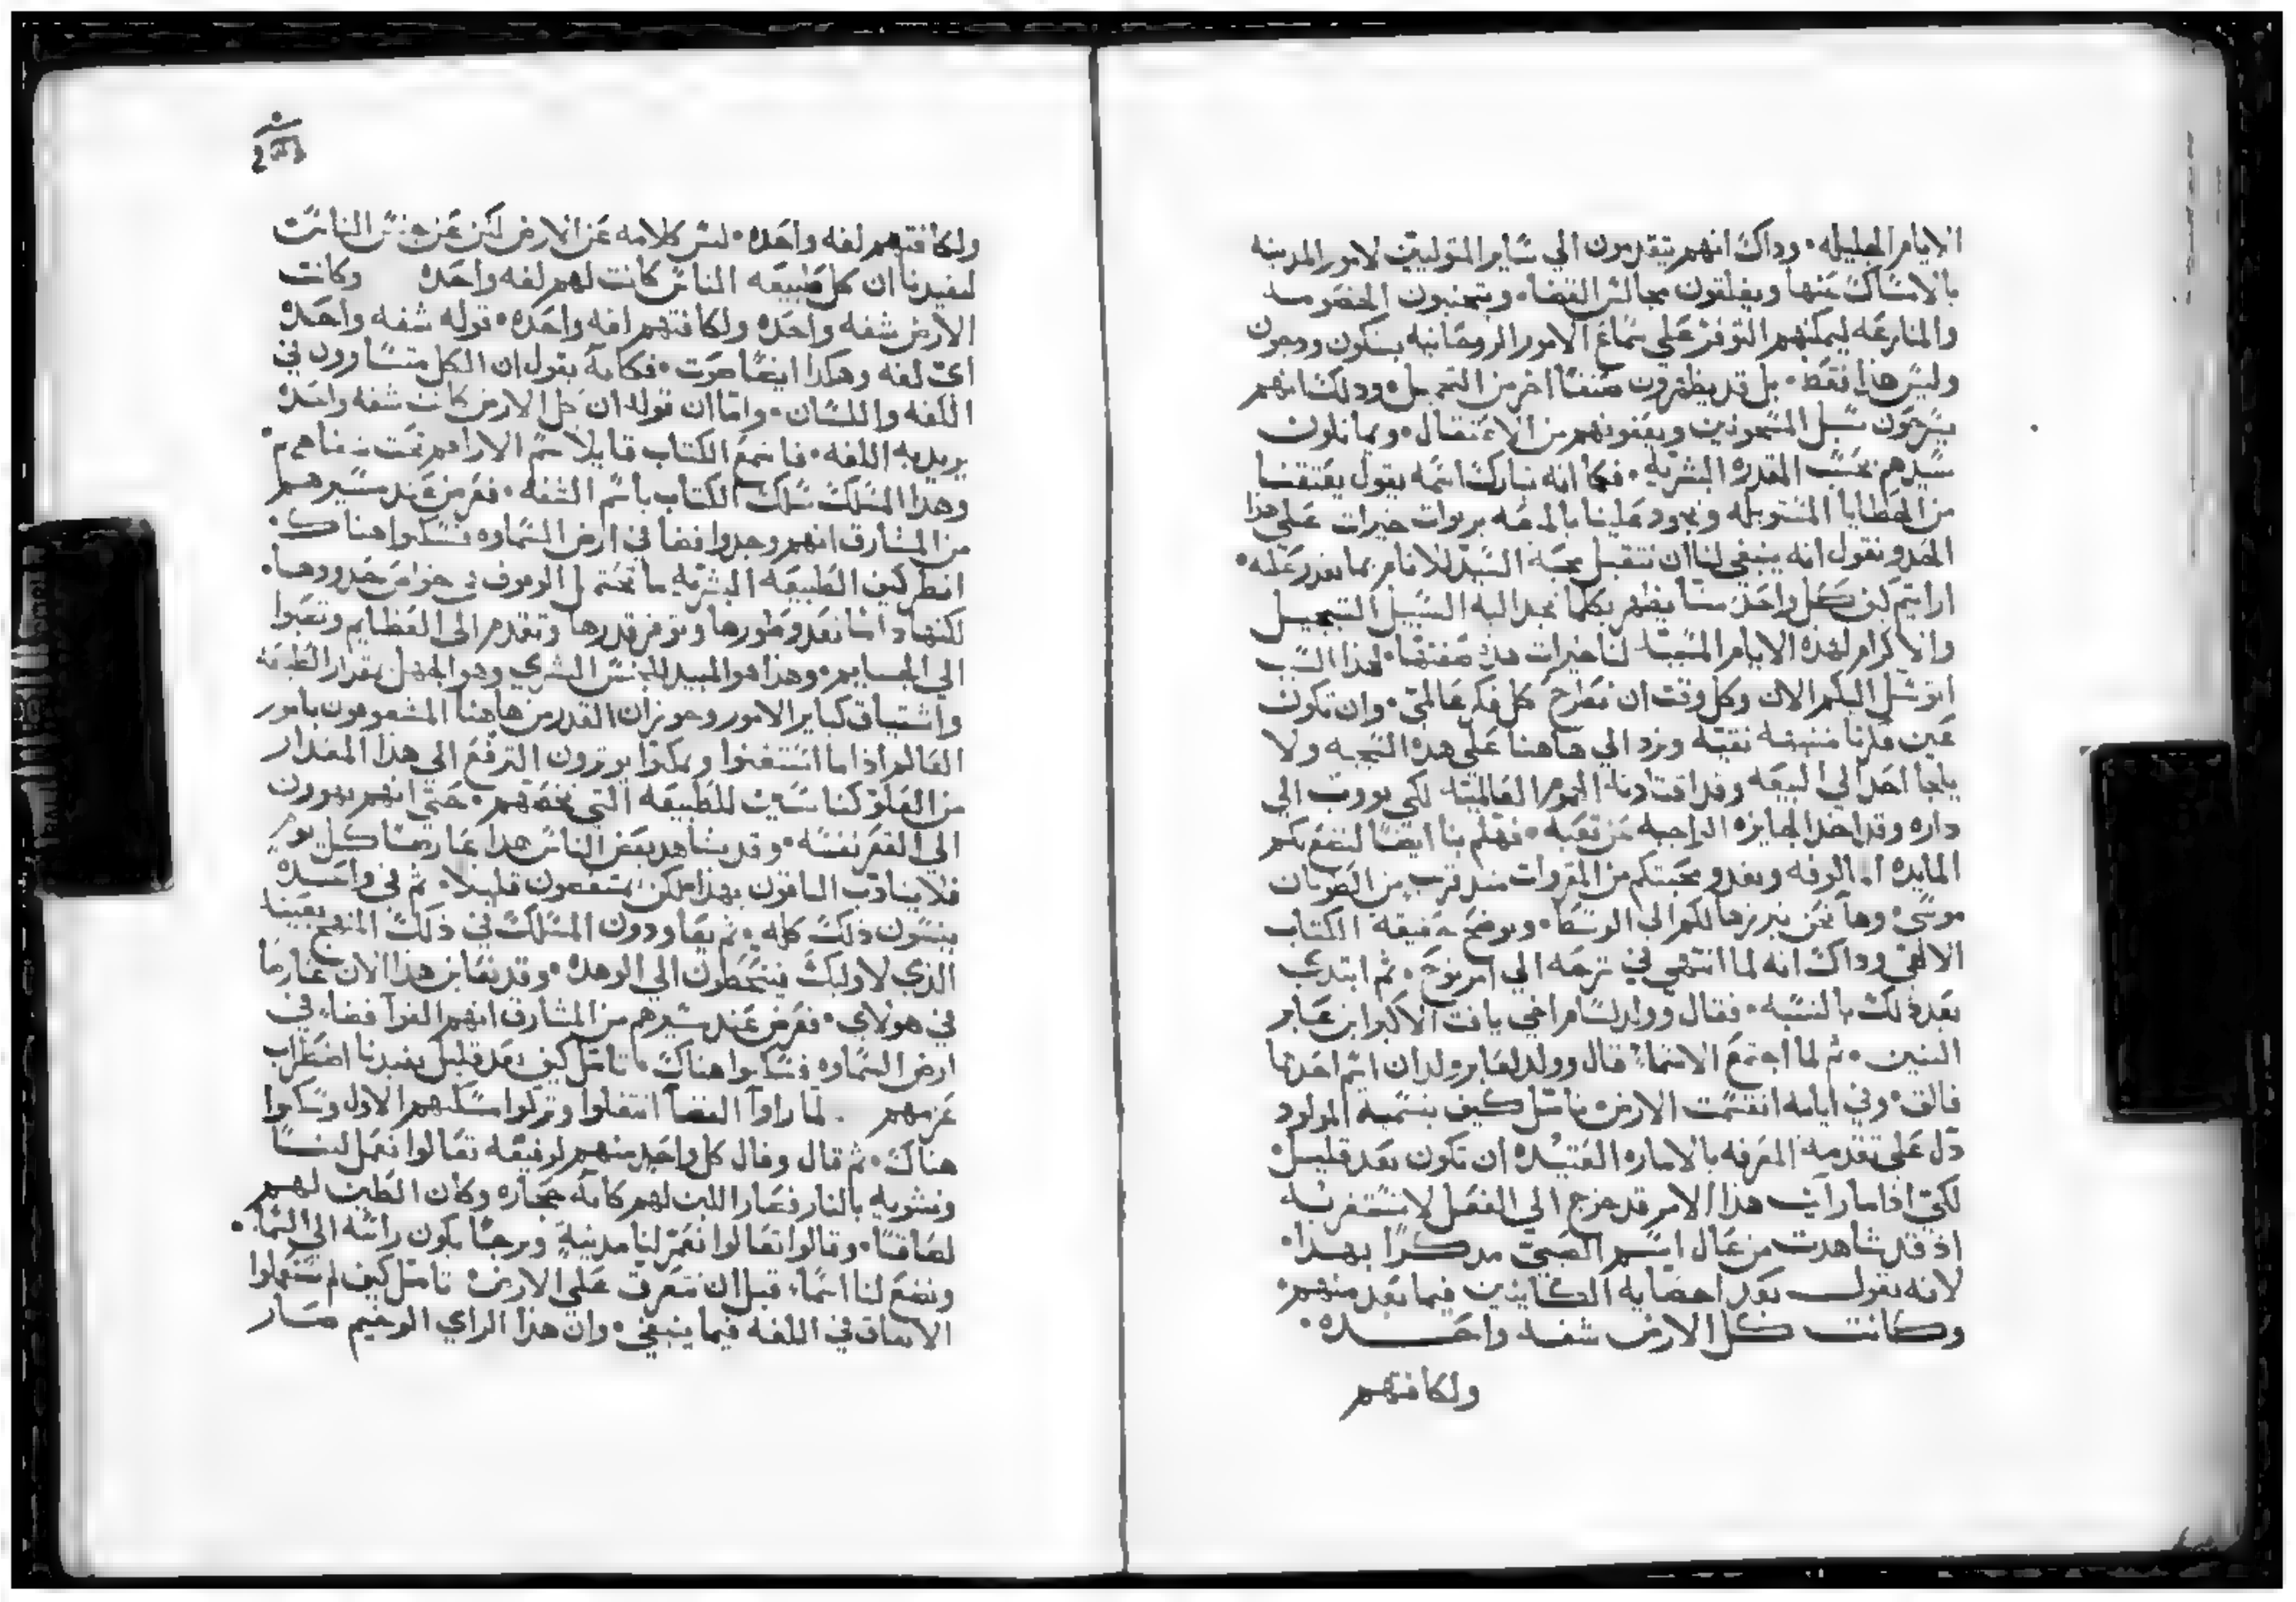 الايام الجليله · وداك انهم يتقدمون الي ساير المتوليين لامور المدينه
بالامساك عنها ويغلقون مجالس القضا · ويتجنبون الخصومه
والمنازعه ليمكنهم التوفر علي سماع الامور الروحانيه بسكون وهجون
وليس هذا فقط · بل قد يظهرون صنفا اخر من التبجيل ودلك انهم
يسرحون سبل المسجونين ويعفونهم من الاعتقال · ويماثلون
سيدهم بحسب القدره البشريه · فكما انه تبارك اسمه يقول يعتقنا
من الخطايا المستوبله ويجود علينا بالمعه بربوات خيرات علي هذا
الحد ونقول انه ينبغي لنا ان نتقبل محبه السيد للانام بما نقدر عليه ·
ارايتم كيف كل واحد منا يظهر بكلما نجد اليه السبيل التبجيل
والاكرام لهده الايام المسببه لنا خيرات هده صفتها · لهذا السبب
اتوسل اليكم الان وكل وقت ان نطرح كل فكر عالمي · وان تكون
عين فكرنا منتبهه نقيه ونرد الي هاهنا علي هده السجيه ولا
يلجا احد الي البيعه وقد اقتادته الهموم العالميه لكي يووب الي
داره وقد اخد الجايزه الواجبه عن تعبه · فهلم بنا ايضا لنضع بكم
المايده المالوفه ونغدو محبتكم من المقروات مند قرب من الطوبان
موسي · وها نحن نبرزها لكم الي الوسط · ونوضح حقيقه الكتاب
الالهي وداك انه لما انتهي في ترجمه الي امر نوح · ثم ابتدي
بعد ذلك بالنسبه · فقال وولد لسام اخي يافت الاكبر ابن عابر
البنين · ثم لما اجتمع الانتماء قال وولد لعابر ولدان اسم احدهما
فالق · وفي ايامه انقسمت الارض تامل كيف بتسميه المولود
دل علي تقدمه المعرفه بالاماره العتيده ان تكون بعد قليل
لكي اذا ما رايت هذا الامر قد خرج الي الفعل لا تستغربه
اذ قد شاهدت من عال اسم الصبي مدكرا بهدا ·
لانه يقول بعد احصايه الكاينين فيما بعد منهم ·
وكانت كل الارض شفه واحده ·
ولكافتهم
ولكافتهم لغه واحده · ليس كلامه عن الارض لكن عن جنس الناس
ليفيدنا ان كل طبيعه الناس كانت لهم لغه واحده وكانت
الارض شفه واحده ولكافتهم لغه واحده · قوله شفه واحده
اي لغه وهكدا ايضا صوت · فكانه يقول ان الكل متساوون في
اللغه واللسان · واما ان قوله ان كل الارض كانت شفه واحده
يريد به اللغه · فاسمع الكتاب قايلا سم الاراقم تحت شفاههم ·
وهدا المسلك سلك الكتاب باسم الشفه · فعرض عند مسيرهم
من المشارق انهم وجدوا فضا في ارض السماره فسكنوا هناك ·
انظر كيف الطبيعه البشريه ما تحتمل الوقوف في خواص حدودها ·
لكنها داىما تعدو طورها وتوفر قدرها وتتقدم الي العظايم وتصبوا
الي الجسايم · وهذا هو المبيد للجنس البشري وهو الجهل بمقدار الطبيعه
واشتياق كباير الامور وحوزان القدر من هاهنا المشعوفون بامور
العالم اذا ما استغنوا وتمكنوا يوثرون الترفع الي هذا المقدار
من الغلو كناسين للطبيعه التي تخصهم · حتي انهم يهوون
الي القعر نفسه · وقد يشاهد بعض الناس هدا عارضا كل يوم
فلا يتادب الباقون بهذا لكن يتقمعون قليلا · ثم في واحده
ينسون ذلك كله · ثم يعاودون المسلك في ذلك المنهج بعينه
الذي لاوليك فينحطون الي الوهده · وقد نعاين هذا الان عارضا
في هولاي · فعرض عند سيرهم من المشارق انهم الفوا فضاء في
ارض السماره فسكنوا هناك تامل كيف بعد قليل يفيدنا اضطراب
عزمهم · لما راوا الفضا انتقلوا وتركوا مسكنهم الاول وسكنوا
هناك · ثم قال وقال كل واحد منهم لرفيقه تعالوا نعمل لبنا
ونشويه بالنار فصار اللبن لهم كانه حجاره وكان الطين لهم
لصاقا · وقالوا تعالوا نعمر لنا مدينة وبرجا يكون راسه الي السما ·
ونضع لنا اسما · قبل ان نتفرق علي الارض تامل كيف لم يستعملوا
الاتفاق في اللغه فيما ينبغي · وان هذا الراي الوخيم صار